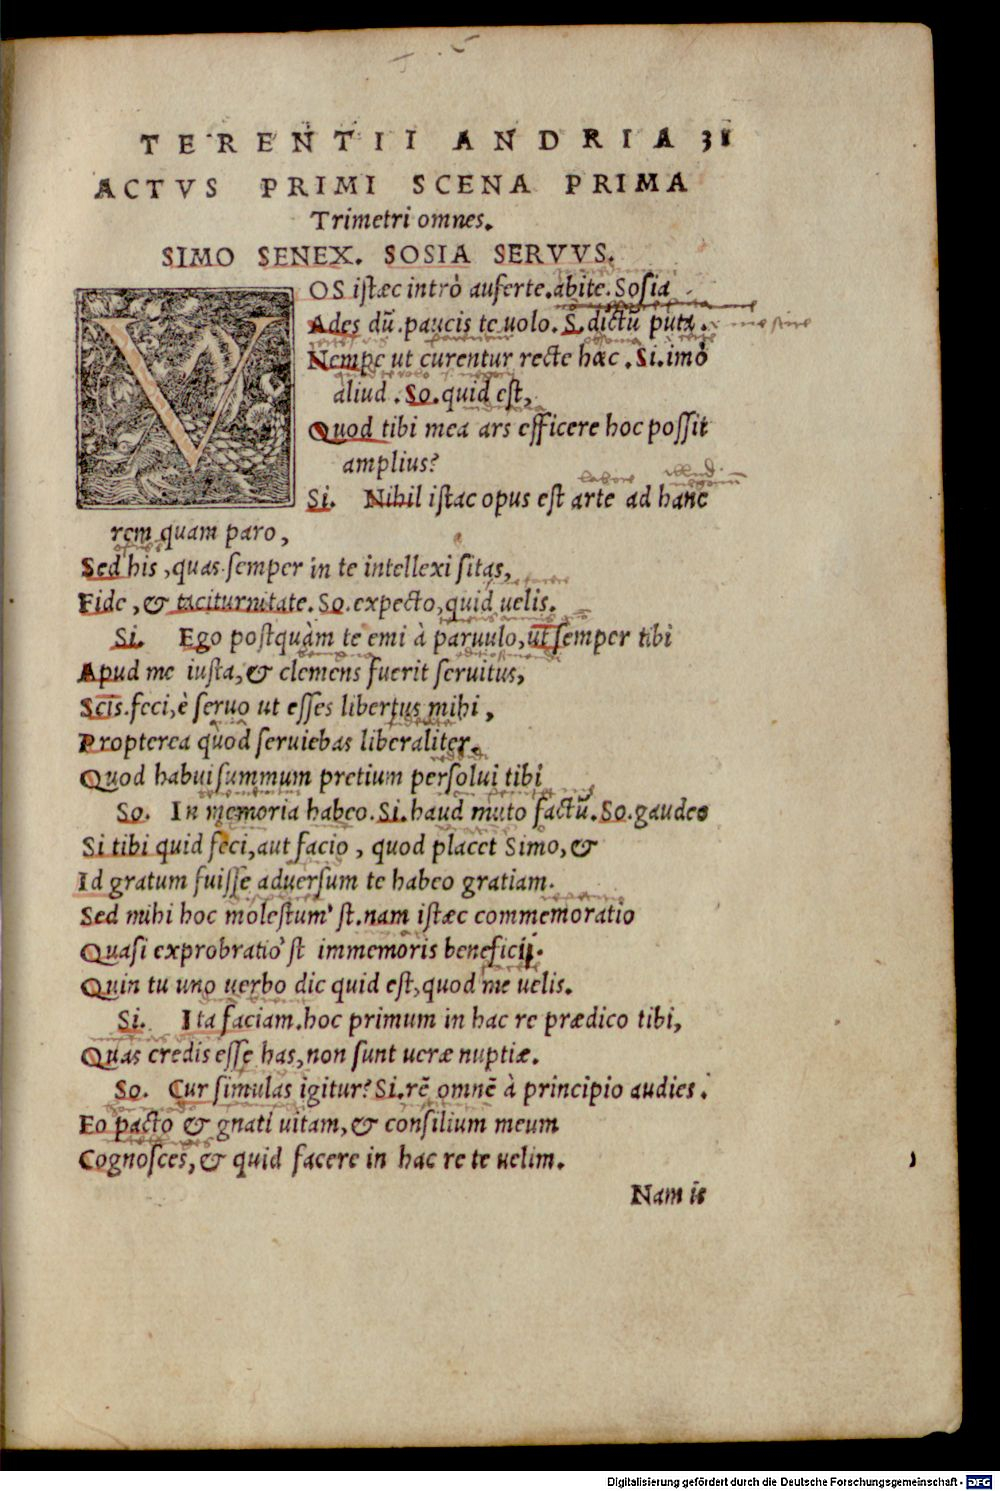 TERENTII ANDRIA 31
ACTVS PRIMI SCENA PRIMA
Trimetri omnes.
SIMO SENEX. SOSIA SERVVS.
VOS istæc intrò auferte.abite.Sosia
Ades dũ.paucis te uolo. S.dictũ puta.
Nempe ut curentur recte hæc .Si.imò
aliud .So.quid est,
Quod tibi mea ars efficere hoc possit
amplius?
Si. Nihil istac opus est arte ad hanc
rem quam paro,
Sed his ,quas semper in te intellexi sitas,
Fide ,& taciturnitate.So.expecto,quid uelis.
Si. Ego postquàm te emi à paruulo,ut semper tibi
Apud me iusta,& clemens fuerit seruitus,
Scis.feci,è seruo ut esses libertus mihi ,
Propterea quòd seruiebas liberaliter.
Quod habui summum pretium persolui tibi
So. In memoria habeo.Si.haud muto factũ.So.gaudeo
Si tibi quid feci,aut facio , quod placet Simo,&
Id gratum fuisse aduersum te habeo gratiam.
Sed mihi hoc molestum' st.nam istæc commemoratio
Quasi exprobratio' st immemoris beneficij.
Quin tu uno uerbo dic quid est,quod me uelis.
Si. Ita faciam.hoc primum in hac re prædico tibi,
Quas credis esse has,non sunt ueræ nuptiæ.
So. Cur simulas igitur?Si.rẽ omnẽ à principio audies.
Eo pacto & gnati uitam,& consilium meum
Cognosces,& quid facere in hac re te uelim.
Nam is
Digitalisierung gefördert durch die Deutsche Forschungsgemeinschaft - DFG